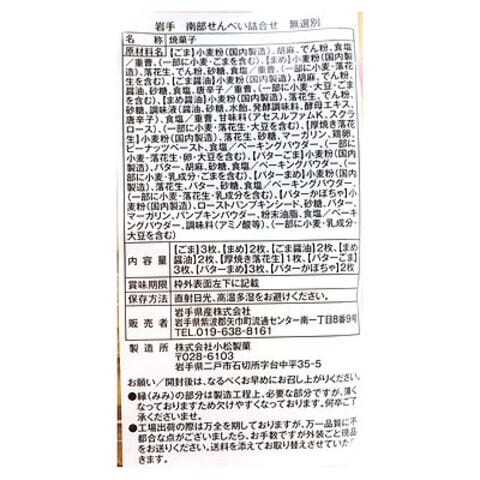 岩手 南部せんべい詰合せ 無選別
名称 焼菓子
原材料名 【ごま】小麦粉(国内製造)、胡麻、でん粉、食塩
／重曹、(一部に小麦・ごまを含む)、【まめ】小麦粉(国内製
造)、落花生、でん粉、砂糖、食塩／重曹、(一部に小麦・落花
生を含む)、【ごま醤油】小麦粉(国内製造)、胡麻、でん粉、
醤油、砂糖、食塩、唐辛子／重曹、(一部に小麦・ごま・大豆
を含む)、【まめ醤油】小麦粉(国内製造)、落花生、でん粉、
砂糖、調味液(醤油、砂糖、水飴、発酵調味料、酵母エキス、
唐辛子)、食塩／重曹、甘味料(アセスルファムK、スクラ
ロース)、(一部に小麦・落花生・大豆を含む)、【厚焼き落花
生】小麦粉(国内製造)、落花生、砂糖、マーガリン、鶏卵、
ピーナッツペースト、食塩／ベーキングパウダー、(一部に
小麦・落花生・卵・大豆を含む)、【バターごま】小麦粉(国内
製造)、バター、胡麻、砂糖、食塩／ベーキングパウダー、
(一部に小麦・乳成分・ごまを含む)、【バターまめ】小麦粉(国
内製造)、落花生、バター、砂糖、食塩／ベーキングパウダー、
(一部に小麦・落花生・乳成分を含む)、【バターかぼちゃ】小
麦粉(国内製造)、ローストパンプキンシード、砂糖、バター、
マーガリン、パンプキンパウダー、粉末油脂、食塩／ベーキ
ングパウダー、調味料(アミノ酸等)、(一部に小麦・乳成分・
大豆を含む)
内容量 【ごま】3枚、【まめ】2枚、【ごま醤油】2枚、【まめ
醤油】2枚、【厚焼き落花生】1枚、【バターごま】
3枚、【バターまめ】3枚、【バターかぼちゃ】2枚
賞味期限 枠外表面左下に記載
保存方法 直射日光、高温多湿をお避けください。
販売者 岩手県産株式会社
岩手県紫波郡矢巾町流通センター南一丁目8番9号
TEL.019-638-8161
製造所 株式会社小松製菓
〒028-6103
岩手県二戸市石切所字台中平35-5
お願い／開封後は、なるべくお早めにお召し上がりください。
●縁(みみ)の部分は製造工程上、必要な部分ですが、薄く
なっておりますため欠けやすくなっております。何卒ご了
承ください。
●工場出荷の際は万全を期しておりますが、万一品質に不
都合な点がございましたら、お手数ですが外装ごと現品
をお送りください。送料を添えてお取り替えさせていた
きます。